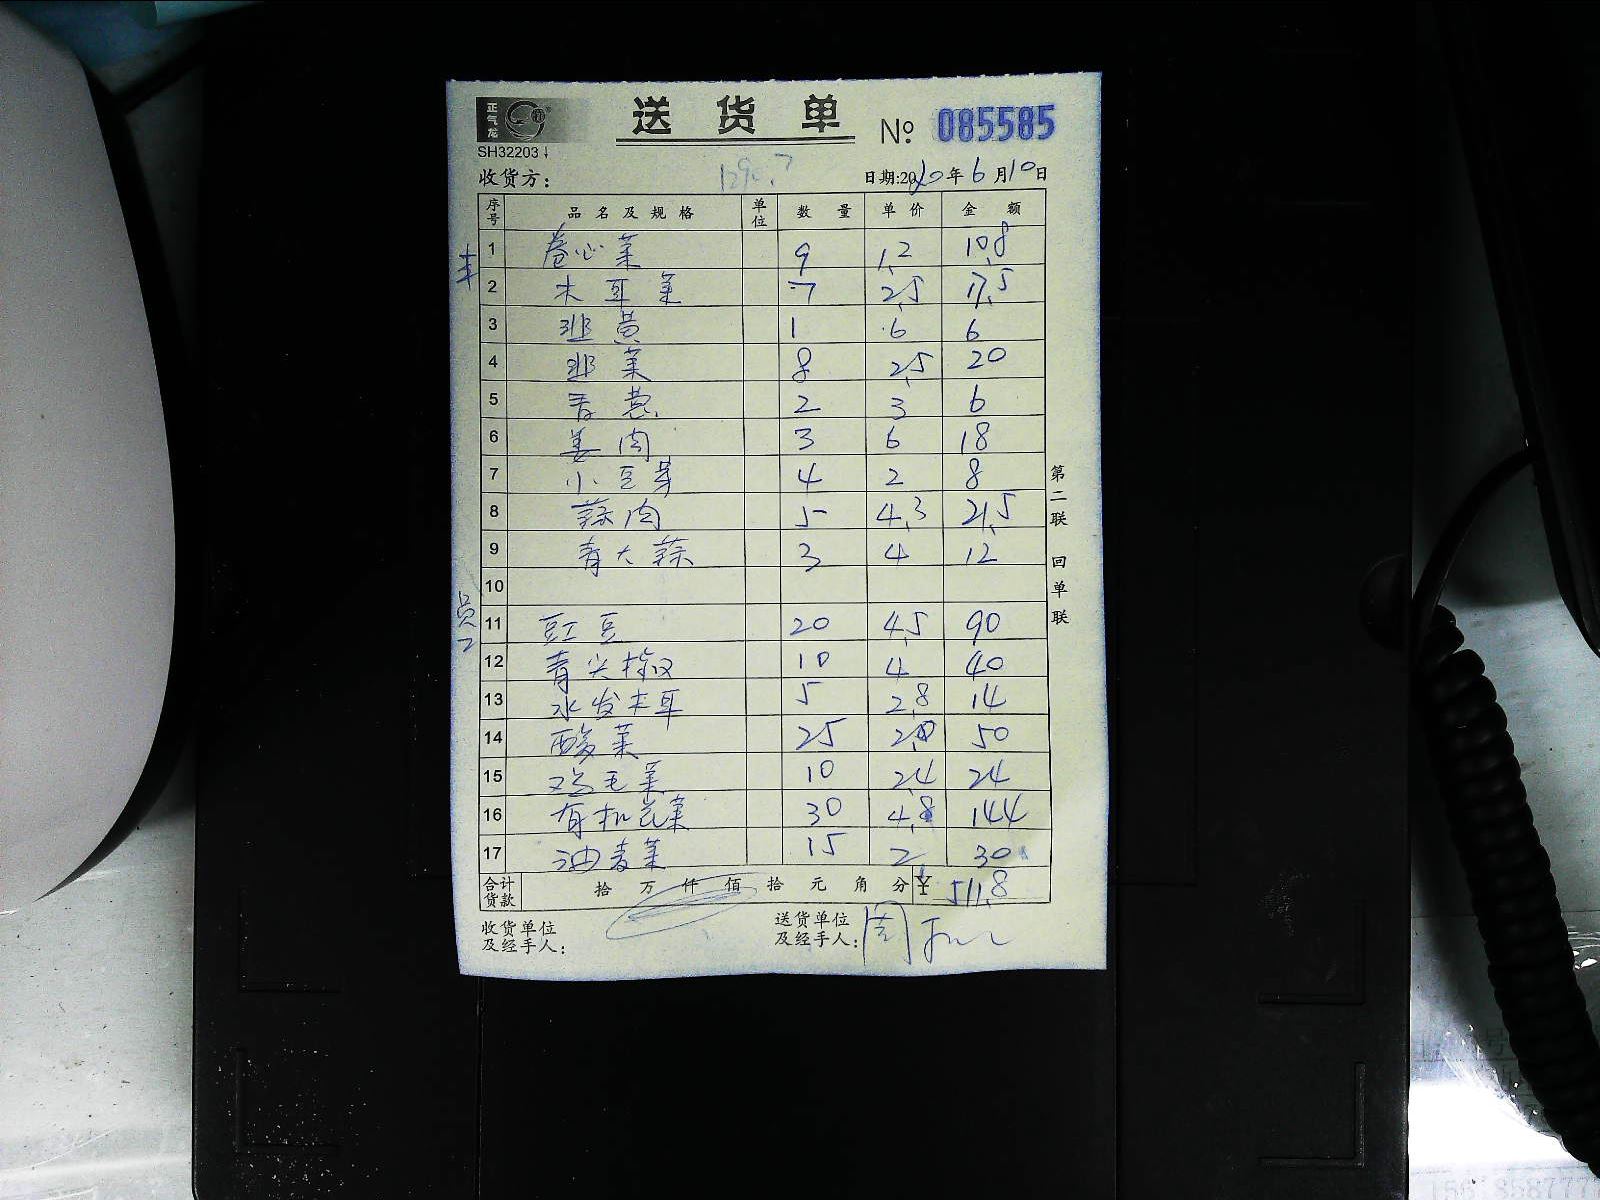 正气龙
送货单 № 085585
SH32203↓
收货方： 1290.7 日期:2020年6月10日
序号 品名及规格 单位 数量 单价 金额
1 卷心菜 9 1.2 10.8
2 木耳菜 7 2.5 17.5
3 韭黄 1 6 6
4 韭菜 8 2.5 20
5 香葱 2 3 6
6 姜肉 3 6 18
7 小豆芽 4 2 8
8 蒜肉 5 4.3 21.5
9 青大蒜 3 4 12
10
员工
11 豇豆 20 4.5 90
12 青尖椒 10 4 40
13 水发木耳 5 2.8 14
14 酸菜 25 2.0 50
15 鸡毛菜 10 2.4 24
16 有机花菜 30 4.8 144
17 油麦菜 15 2 30
合计货款 拾 万 仟 佰 拾 元 角 分 ¥ 511.8
收货单位及经手人：
送货单位及经手人： 周
第二联 回单联